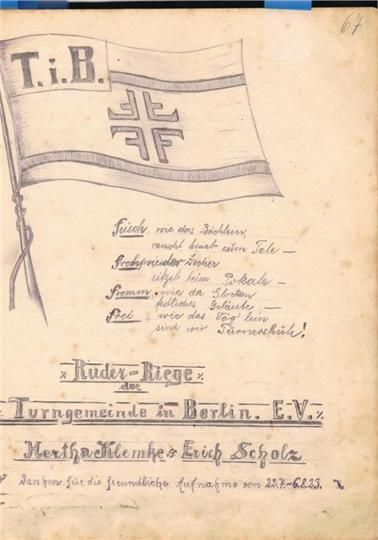 67
T.i.B.
F F F F
Frisch, wie das Bächlein
rauscht hinab zum Tale —
Froh, wie der Zecher
sitzet beim Pokale —
Fromm, wie da Glocken
festliches Geläute —
Frei, wie das Vög'lein
sind wir Turnersleut!
Ruder-Riege
der
Turngemeinde in Berlin. E.V.
Hertha Klemke Erich Scholz
Danken für die freundliche Aufnahme vom 22.7.–6.8.23.